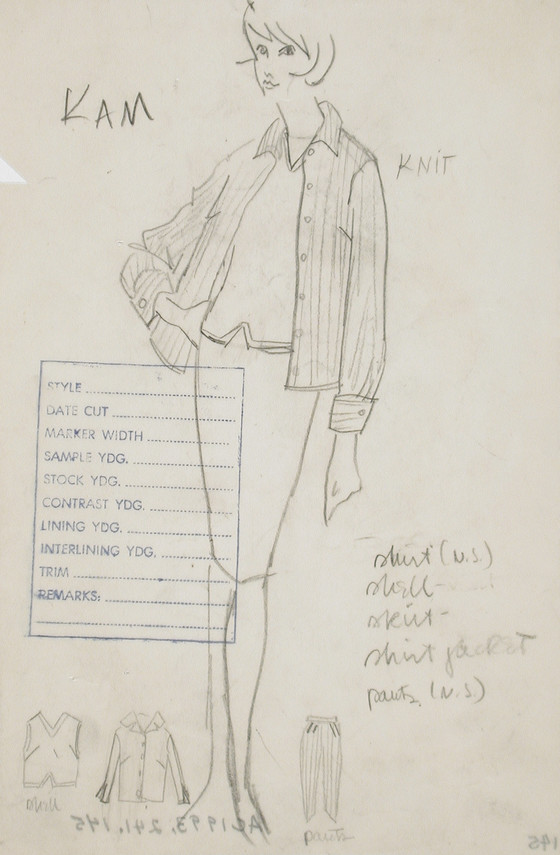 KAM
KNIT
STYLE
DATE CUT
MARKER WIDTH
SAMPLE YDG.
STOCK YDG.
CONTRAST YDG.
LINING YDG.
INTERLINING YDG.
TRIM
REMARKS:
shirt (N.S.)
shell-
skirt-
shirt jacket
pants (N.S)
shell
pants
AC1993.241.145
145